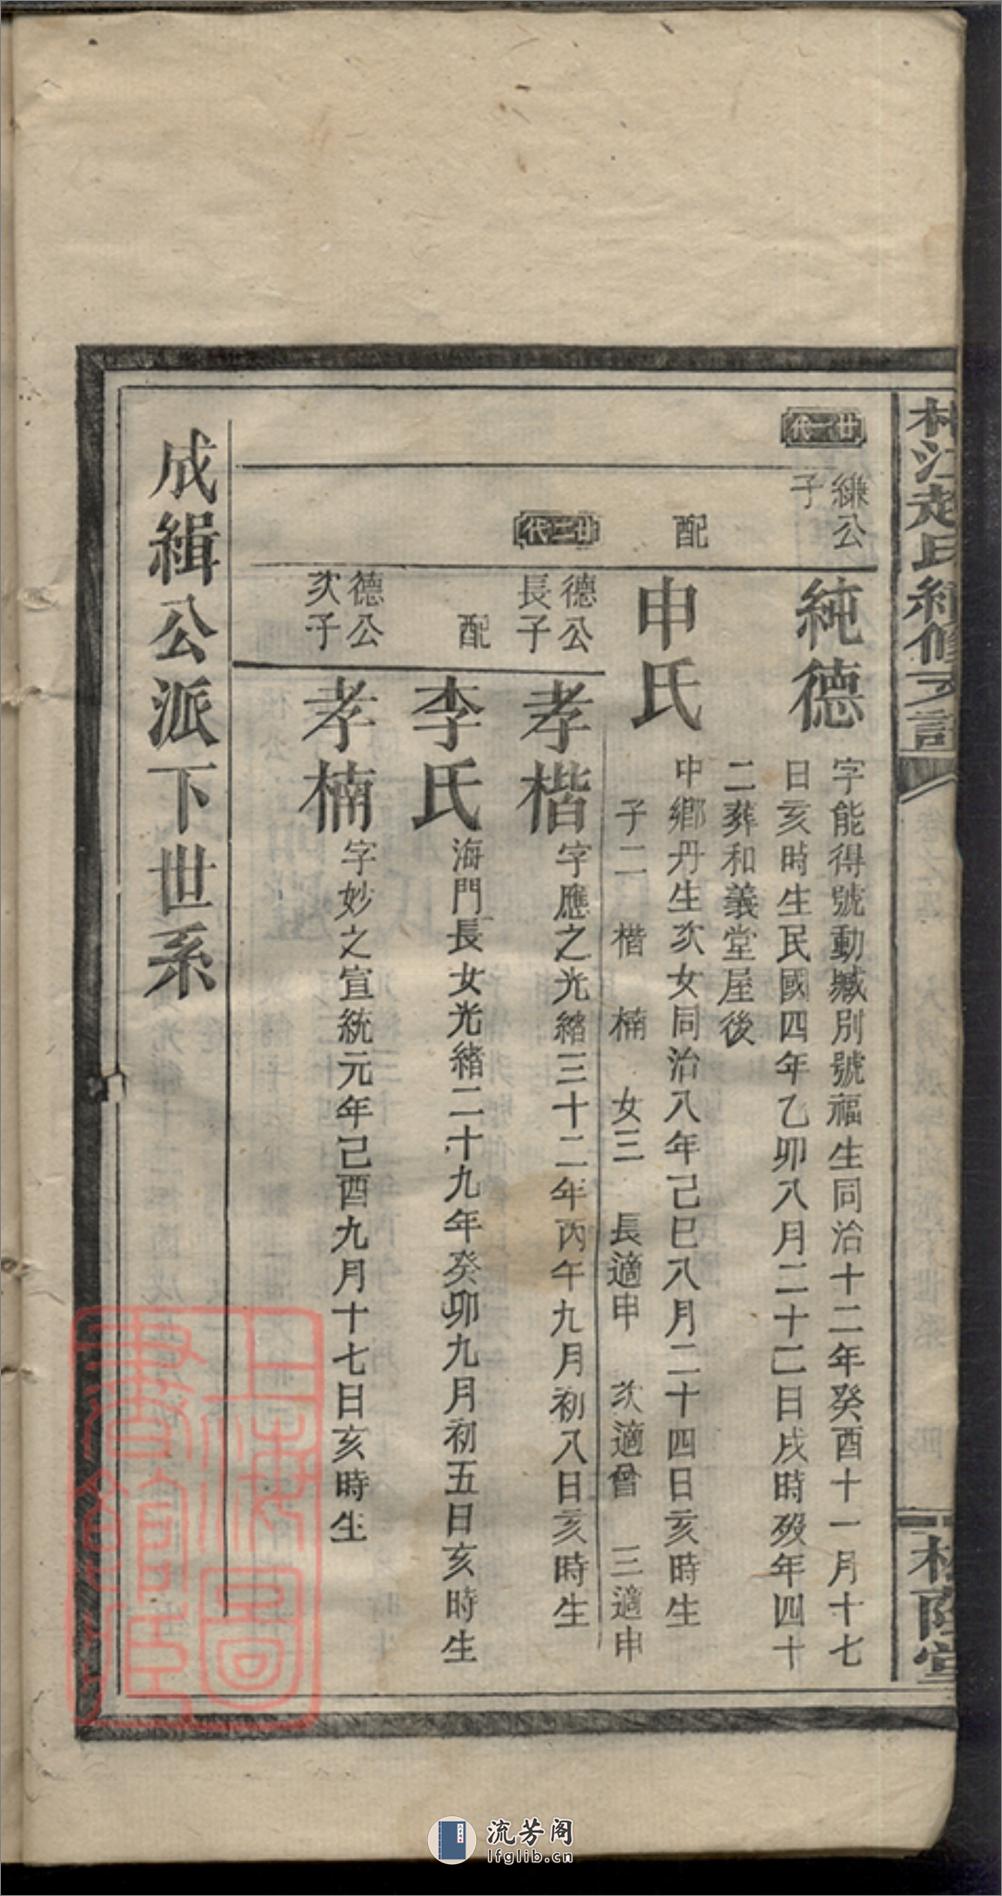 江趙氏續修支譜
廿二代
縑公
子
純德
字能得號動臧別號福生同治十二年癸酉十一月十七
日亥時生民國四年乙卯八月二十二日戌時歿年四十
二葬和義堂屋後
配
申氏
中鄉丹生次女同治八年己巳八月二十四日亥時生
子二 楷 楠 女三 長適申 次適曾 三適申
廿三代
德公
長子
孝楷
字應之光緒三十二年丙午九月初八日亥時生
配
李氏
海門長女光緒二十九年癸卯九月初五日亥時生
德公
次子
孝楠
字妙之宣統元年己酉九月十七日亥時生
成緝公派下世系
蔭堂
上海圖
書館藏
流芳阁
lfglib.cn